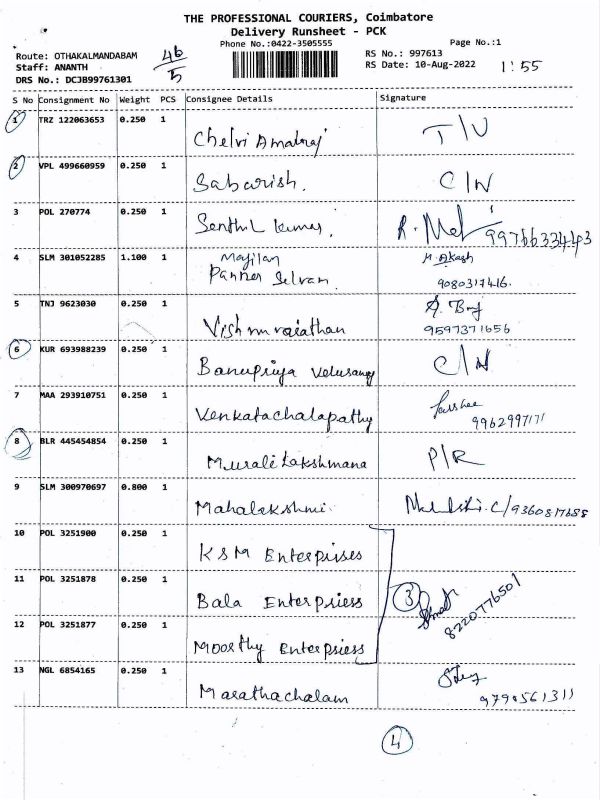 THE PROFESSIONAL COURIERS, Coimbatore
Delivery Runsheet - PCK
Phone No.:0422-3505555 Page No.:1
Route: OTHAKALMANDABAM 46/5 RS No.: 997613
Staff: ANANTH RS Date: 10-Aug-2022 1:55
DRS No.: DCJB99761301
S No Consignment No Weight PCS Consignee Details Signature
1 TRZ 122063653 0.250 1 Chelvi Amalraj T/U
2 VPL 499660959 0.250 1 Sabarish. C/N
3 POL 270774 0.250 1 Senthil kumar R. 9976633443
4 SLM 301052285 1.100 1 Mayilan M. Akash
Panner Selvam 9080317416.
5 TNJ 9623030 0.250 1 Vishnuvaiathan 9597371656
6 KUR 693988239 0.250 1 Banupriya Velusamy C/N
7 MAA 293910751 0.250 1 Venkatachalapathy 9962997171
8 BLR 445454854 0.250 1 Murali Lakshmana P/R
9 SLM 300970697 0.800 1 Mahalakshmi. 9360817688
10 POL 3251900 0.250 1 KSM Enterprises
11 POL 3251878 0.250 1 Bala Enterpriess 3 8220776501
12 POL 3251877 0.250 1 Moorthy Enterpriess
13 NGL 6854165 0.250 1 Marathachalam 9790561311
4